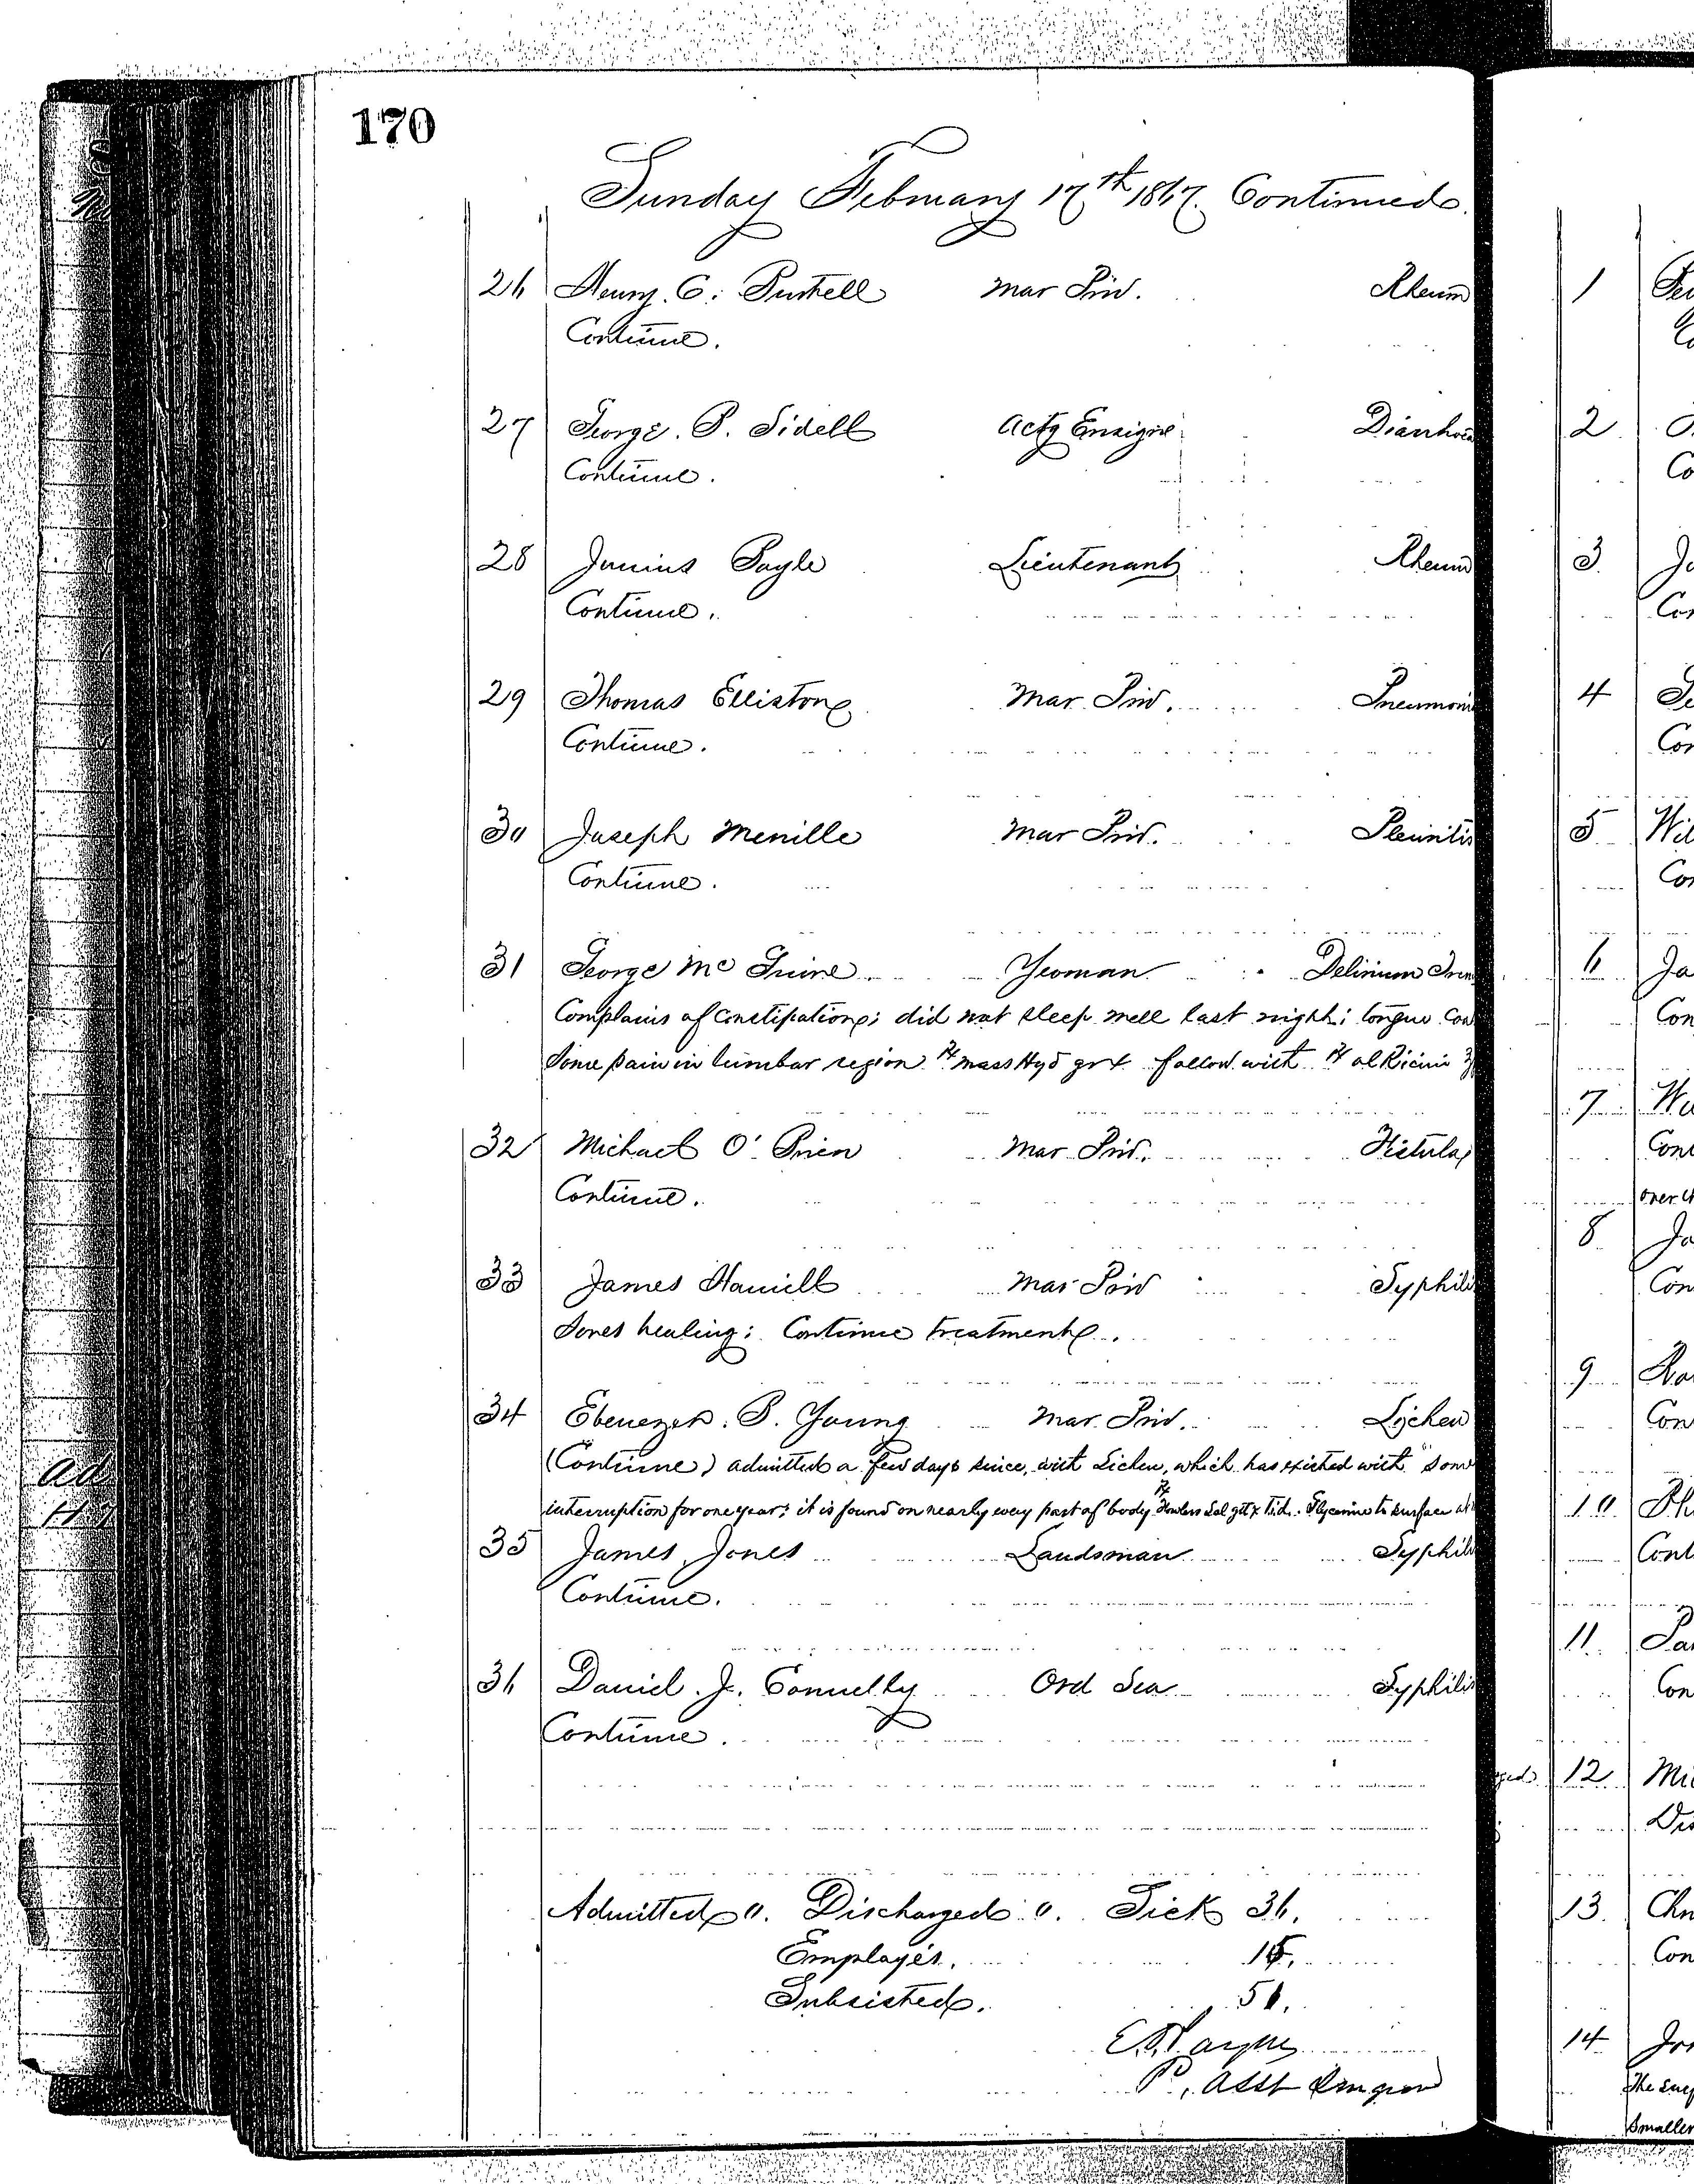 170
Sunday February 17th 1867. Continued.
26 Henry. C. Purtell Mar Priv. Rheum
Continue.
27 George. P. Sidell Actg Ensign Diarrhoea
Continue.
28 Junius Lieutenant Rheum
Continue.
29 Thomas Elliston Mar Priv. Pneumoni
Continue.
30 Joseph Menille Mar Priv. Pleuritis
Continue.
31 George Mc Guire Yeoman Delirium Trem
Complains of constipation; did not sleep well last night; tongue coa
Some pain in lumbar region ℞ mass Hyd grx follow with ℞ ol Ricini ℥
32 Michael O' Brien Mar Priv. Fistula
Continue.
33 James Mar Priv Syphilis
Sores healing; Continue treatment.
34 Ebenezer. P. Young Mar Priv. Lichen
(Continue) admitted a few days since, with Lichen, which has existed with some
interruption for one year; it is found on nearly every part of body ℞ Fowlers Sol gtt x t.i.d. Glycerine to surface
35 James Jones Landsman Syphili
Continue.
36 Daniel. J. Connelly Ord Sea Syphilis
Continue.
Admitted 0. Discharged 0. Sick 36.
Employés. 15.
Subsisted. 51.
P., Asst Surgeon
1
2
Co
3 Ja
Con
4
Con
5 Wil
Con
6 Ja
Con
7
Cont
over
8 Ja
Con
9
Con
10
Cont
11
Con
12
13
Con
14
Smaller